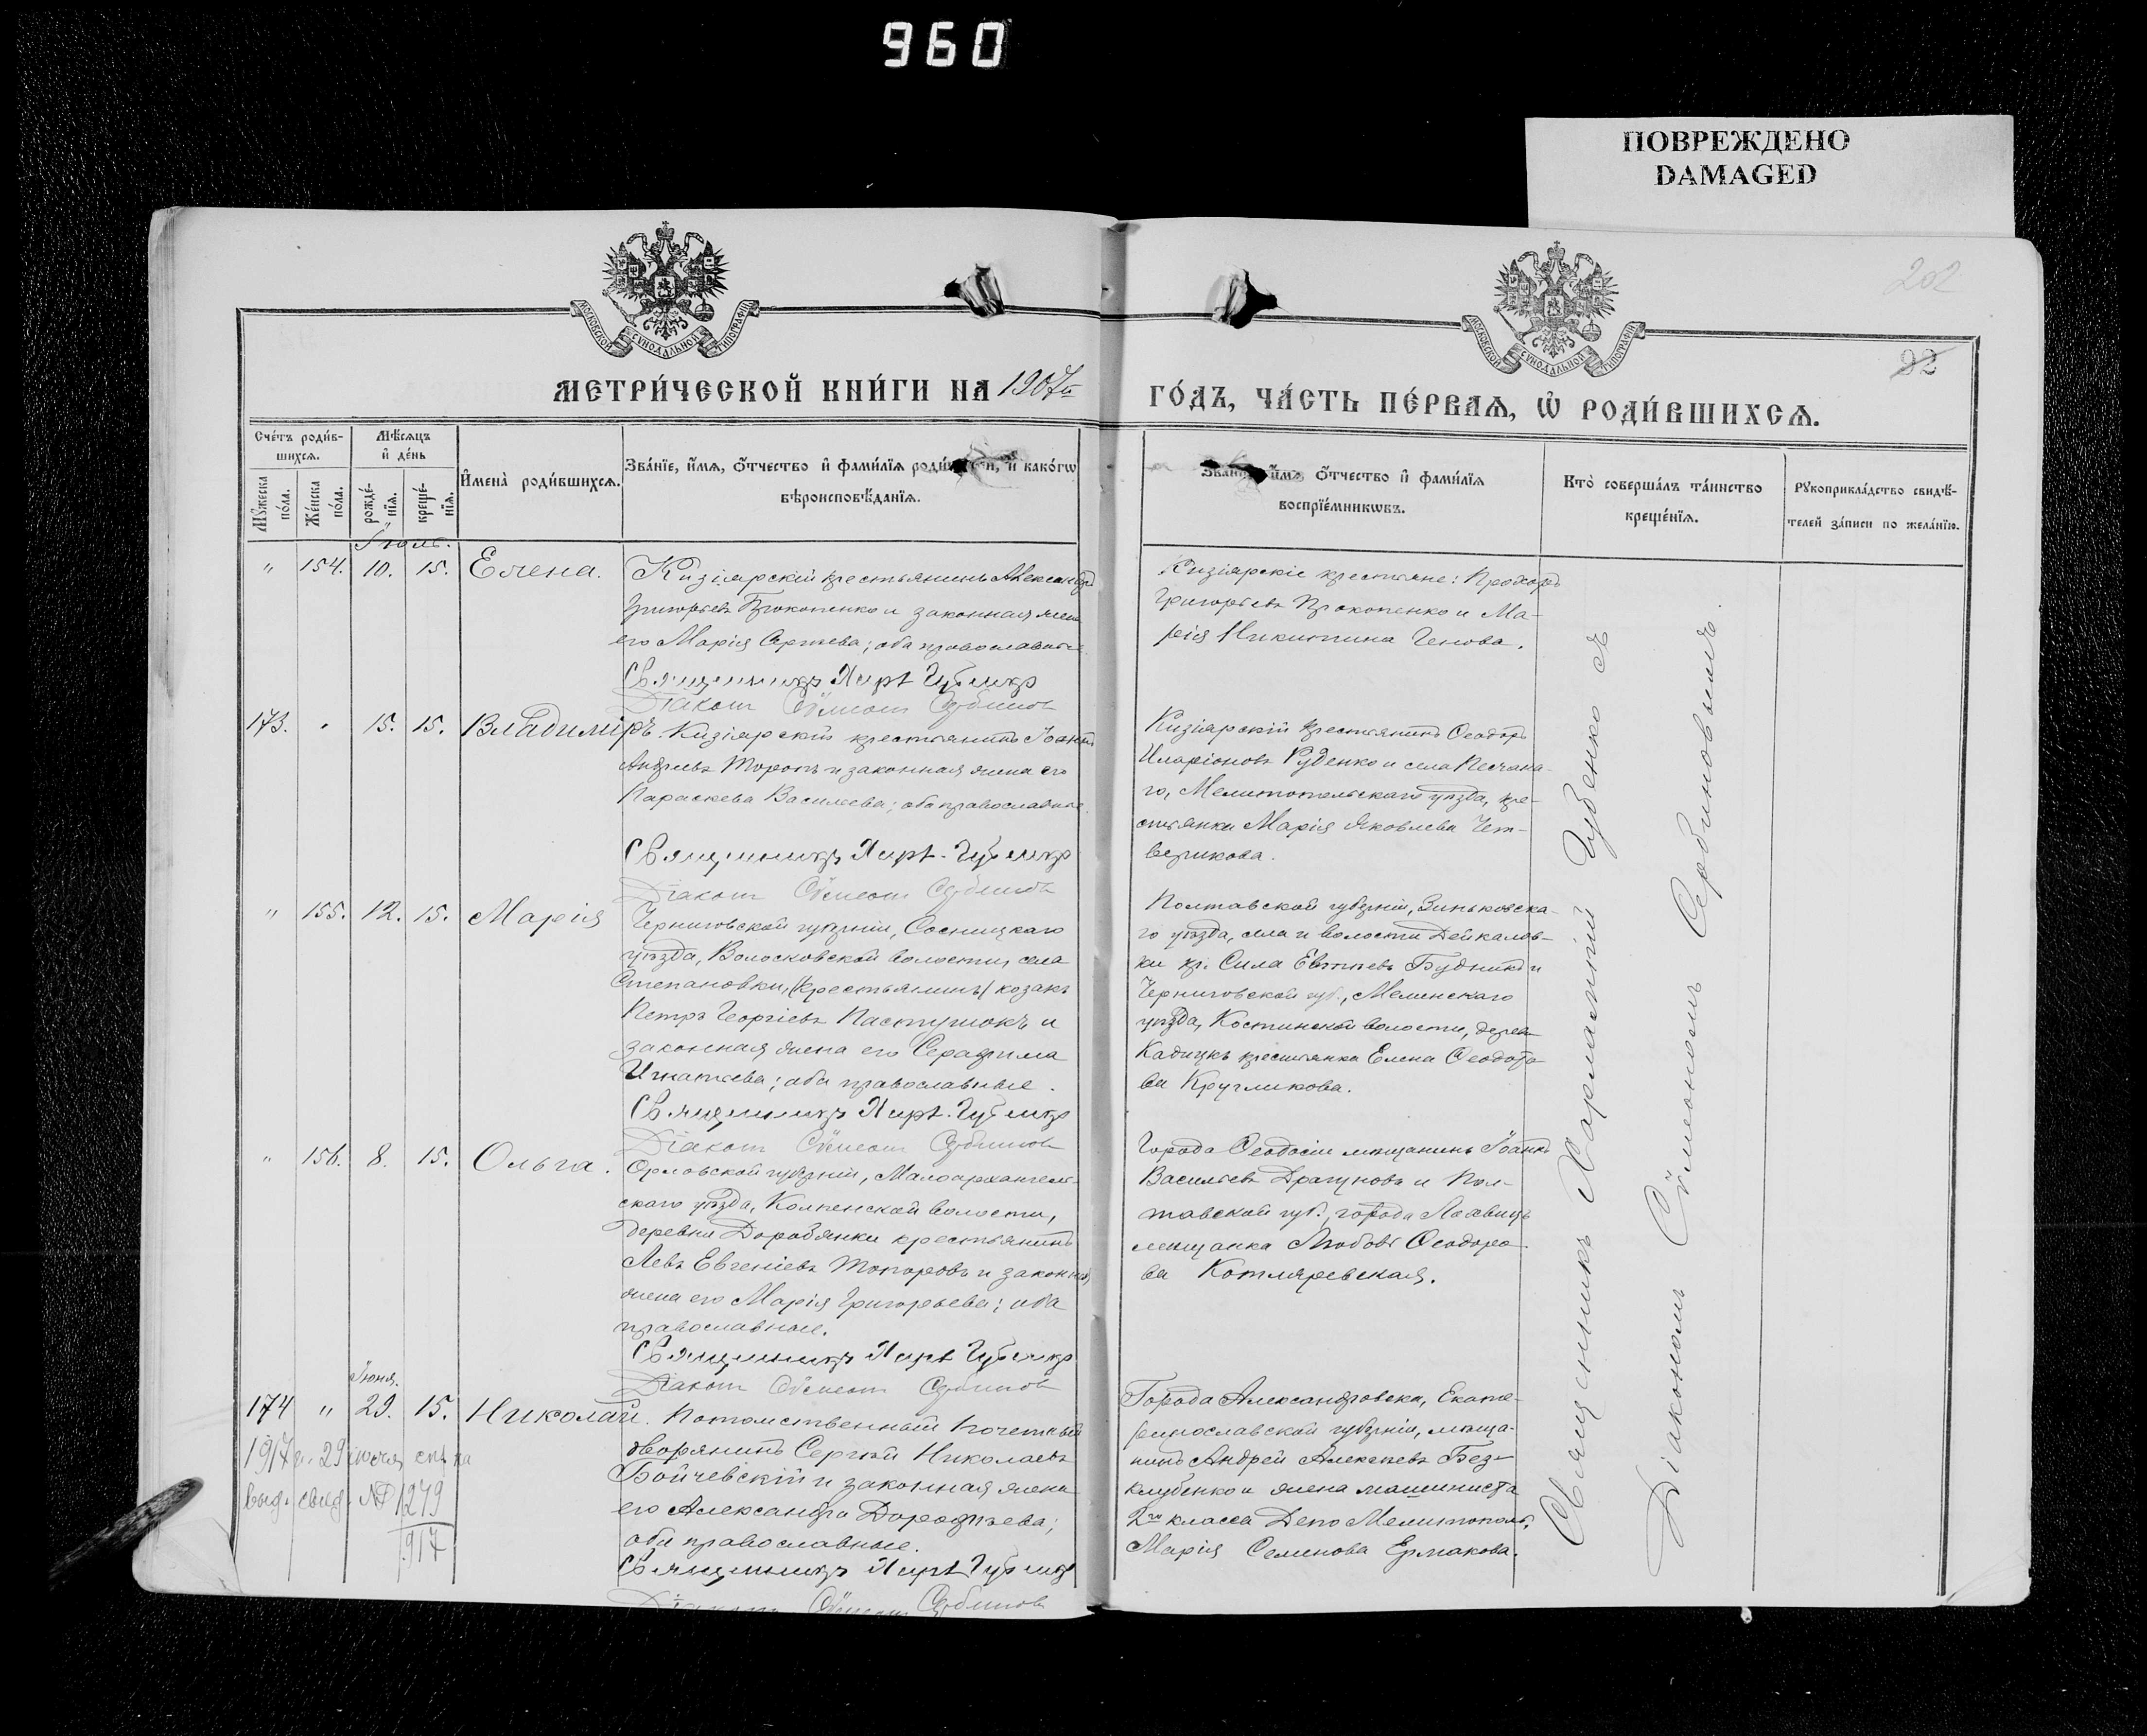 960
ПОВРЕЖДЕНО
DAMAGED
202
92
МОСКОВСКОЙ СѴНОДАЛЬНОЙ ТИПОГРАФІИ
МОСКОВСКОЙ СѴНОДАЛЬНОЙ ТИПОГРАФІИ
МЕТРИ́ЧЕСКОЙ КНИ́ГИ НА 1907й
ГО́ДЪ, ЧА́СТЬ ПЕ́РВАѦ, Ѡ҆ РОДИ́ВШИХСѦ.
Сче́тъ роди́в-
шихсѧ.
Мѣ́сѧцъ
и҆ де́нь
Мꙋ́жеска
по́ла.
Же́нска
по́ла.
рожде́-
нїѧ.
креще́-
нїѧ.
И҆мена̀ роди́вшихсѧ.
Зва́нїе, и҆́мѧ, ѻ҆́тчество и҆ фами́лїѧ роди́ и҆ како́гѡ
вѣроисповѣ́данїѧ.
и҆́мѧ ѻ҆́тчество и҆ фами́лїѧ
воспрїе́мникѡвъ.
Кто̀ соверша́лъ та́инство
креще́нїѧ.
Рꙋкоприкла́дство свидѣ́-
телей за́писи по жела́нїю.
Іюль.
" 154. 10. 15. Елена.
Кизіярскій крестьянинъ Александръ
Григорьевъ Прокопенко и законная жена
его Марія Сергѣева; оба православные.
Священникъ Харл. Губенко
Діаконъ Сѵмеонъ Сербиновъ
Кизіярскіе крестьяне: Прохоръ
Григорьевъ Прокопенко и Ма-
рія Никитина Ченова.
173. " 15. 15. Владиміръ.
Кизіярскій крестьянинъ Іоаннъ
Андреевъ Торопъ и законная жена его
Параскева Васильева; оба православные.
Священникъ Харл. Губенко
Діаконъ Сѵмеонъ Сербиновъ
Кизіярскій крестьянинъ Ѳеодоръ
Иларіоновъ Руденко и села Песчана-
го, Мелитопольскаго уѣзда, кре-
стьянка Марія Яковлева Чет-
верикова.
" 155. 12. 15. Марія
Черниговской губерніи, Сосницкаго
уѣзда, Волосковской волости, села
Степановки, (крестьянинъ) козакъ
Петръ Георгіевъ Пастушокъ и
законная жена его Серафима
Игнатьева; оба православные.
Священникъ Харл. Губенко
Діаконъ Сѵмеонъ Сербиновъ
Полтавской губерніи, Зиньковска-
го уѣзда, села и волости Дейкалов-
ки кр. Сила Евтѣевъ Будникъ и
Черниговской губ.,
уѣзда, Костинской волости, дерев.
крестьянка Елена Ѳеодото-
ва Кругликова.
" 156. 8. 15. Ольга.
Орловской губерніи, Малоархангель-
скаго уѣзда, Колпенской волости,
деревни крестьянинъ
Левъ Евгеніевъ Топоровъ и законная
жена его Марія Григорьева; оба
православные.
Священникъ Харл. Губенко
Діаконъ Сѵмеонъ Сербиновъ
Города Ѳеодосіи мѣщанинъ Іоаннъ
Васильевъ Драгуновъ и Пол-
тавской губ., города
мѣщанка Любовь Ѳеодоро-
ва Котляревская.
Іюня.
174 " 29. 15. Николай.
Потомственный почетный
дворянинъ Сергѣй Николаевъ
Бойчевскій и законная жена
его Александра Дорофѣева;
оба православные.
Священникъ Харл. Губенко
Діаконъ Сѵмеонъ Сербиновъ
Города Александровска, Екате-
ринославской губерніи, мѣща-
нинъ Андрей Алексѣевъ Без-
клубенко и жена машиниста
2го класса Депо Мелитополь,
Марія Семенова Ермакова.
1917 г. 29 іюля
выд. свид. № 1279
917
Священникъ Харлампій Губенко съ
Діакономъ Сѵмеономъ Сербиновымъ.